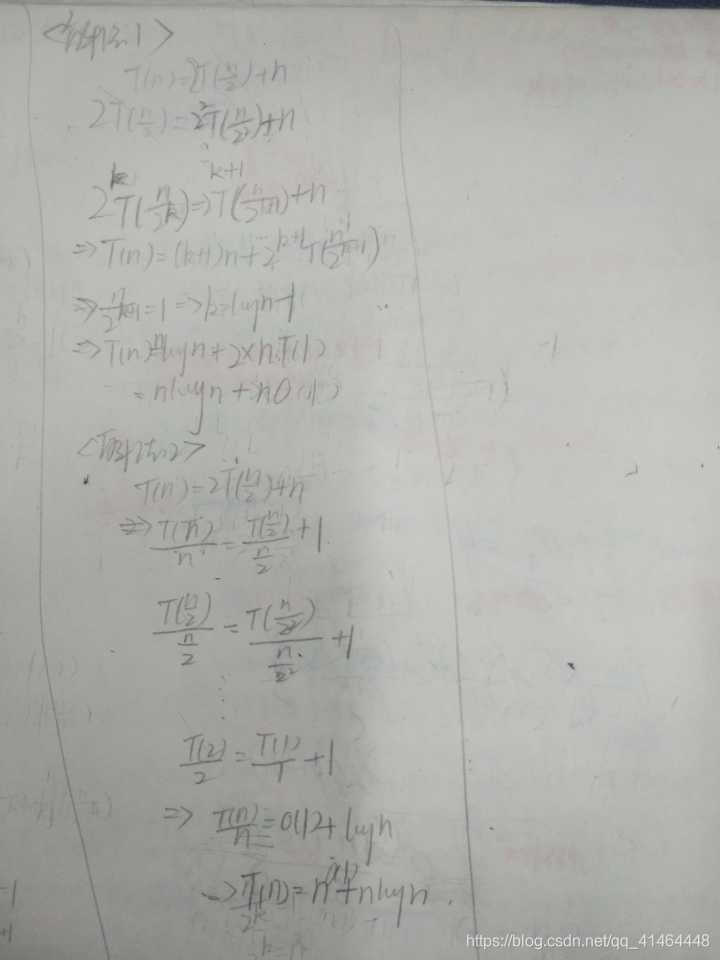 T(n)=2T(n/2)+n
2T(n/2)=2²T(n/2²)+n
⋮
2^k T(n/2^k)=2^(k+1) T(n/2^(k+1))+n
=>T(n)=(k+1)n+2^(k+1) T(n/2^(k+1))
=>n/2^(k+1)=1=>k=logn-1
=>T(n)=nlogn+
=nlogn+nO(1)
T(n)=2T(n/2)+n
=>T(n)/n=T(n/2)/(n/2)+1
T(n/2)/(n/2)=T(n/2²)/(n/2²)+1
⋮
T(2)/2=T(1)/1+1
=>T(n)/n=O(1)+logn
=nlogn
https://blog.csdn.net/qq_41464448